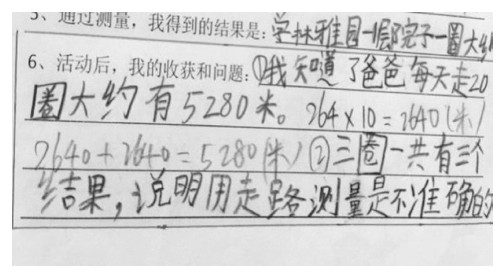 5、通过测量,我得到的结果是:学林雅园一期院子一圈大约
6、活动后,我的收获和问题:①我知道了爸爸每天走20
圈大约有5280米。264×10=2640(米)
2640+2640=5280(米)②三圈一共有三个
结果,说明用走路测量是不准确的